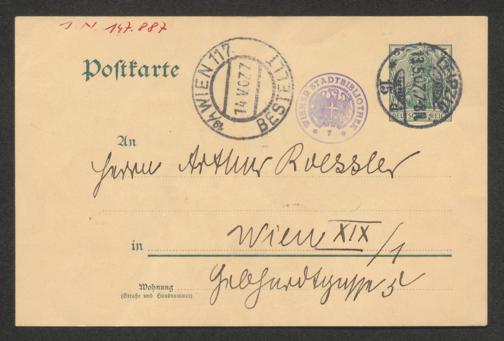 I. N. 147.887
Postkarte
WIEN 117
14 V 07 7
BESTELLT
WIENER STADTBIBLIOTHEK
LEIPZIG
13.5.07.7-8N
15
An
Herrn Arthur Roessler
in Wien XIX/1
Wohnung
(Straße und Hausnummer)
Gebhardtgasse 5